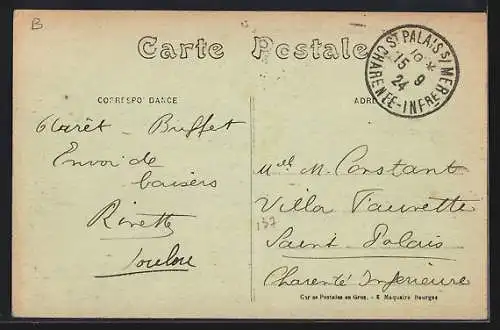 B
Carte Postale
ST PALAIS S/ MER
10 *
15 9
24
CHARENTE-INFRE
CORRESPONDANCE
ADRE
Buffet
Envoi de
baisers
Rivette
Loulou
Melle M. Constant
Villa Faurette
137
Saint-Palais
Charente Inférieure
Cartes Postales en Gros. - E Maquaire Bourges